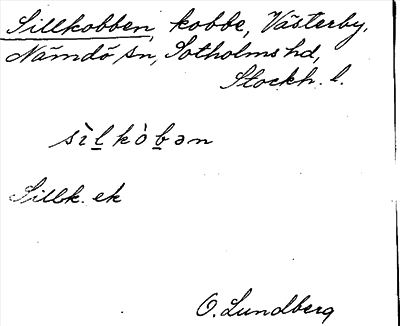 Sillkobben, kobbe, Västerby,
Nämdö sn, Sotholms hd,
Stockh. l.
sìl̲kòb̲ən
Sillk. ek
O. Lundberg